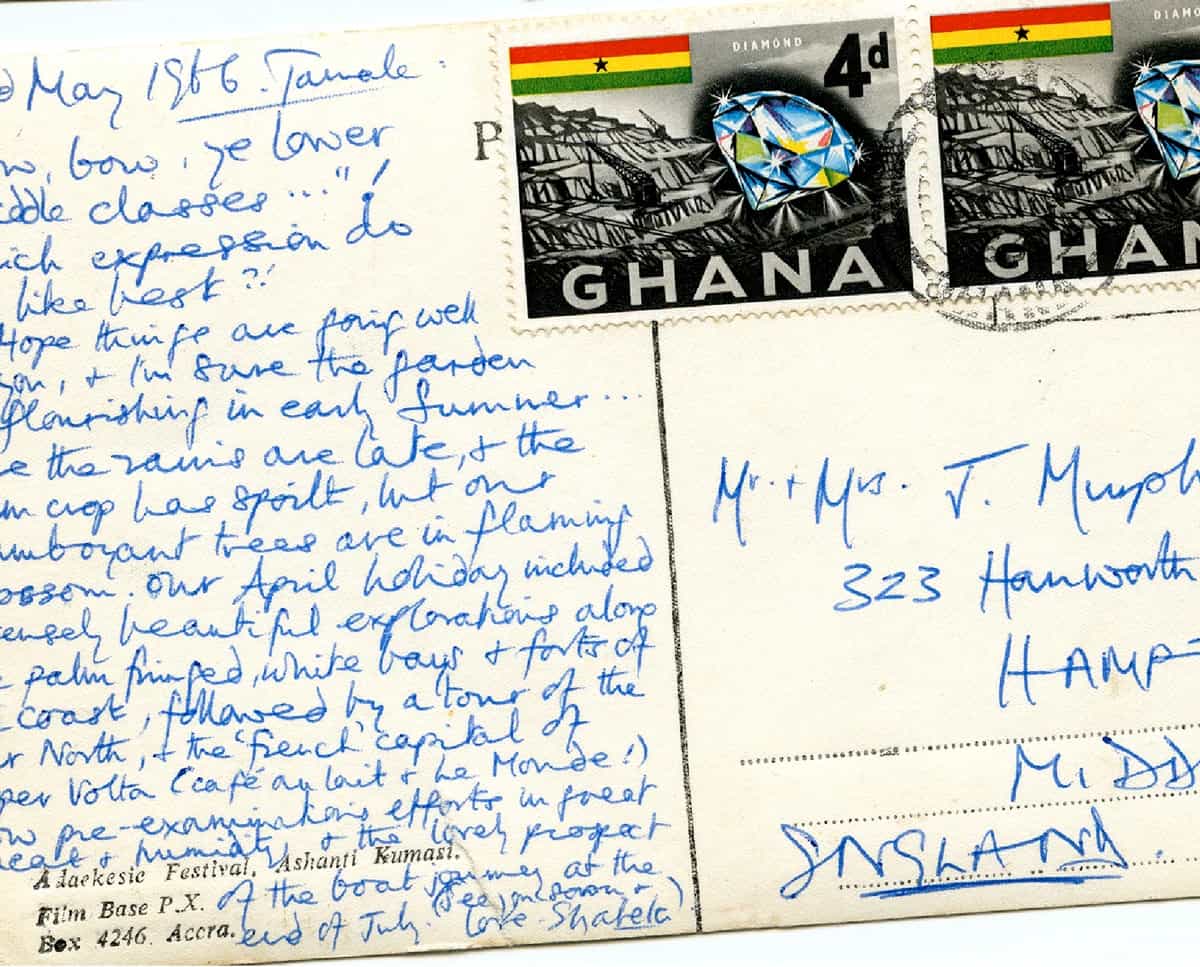 May 1966. Tamale:
w, bow, ye lower
ddle classes..."!
ich expression do
like best?!
Hope things are going well
on, + I'm sure the garden
flourishing in early Summer...
e the rains are late, + the
m crop has spoilt, but our
mboyant trees are in flaming
ossom. Our April holiday included
ensely beautiful explorations along
palm fringed, white bays + forts of
coast, followed by a tour of the
r North, + the 'french' capital of
per Volta (café au lait + Le Monde!)
ow pre-examinations efforts in great
heat + humidity, + the lovely prospect
of the boat journey at the
end of July. (See you soon +
love
Adaekesie Festival, Ashanti Kumasi.
Film Base P.X.
Box 4246. Accra.
P
DIAMOND
4d
GHANA
DIAM
GHAN
Mr. + Mrs. J. Murph
323 Hanworth
HAMP
MIDD
ENGLAND.